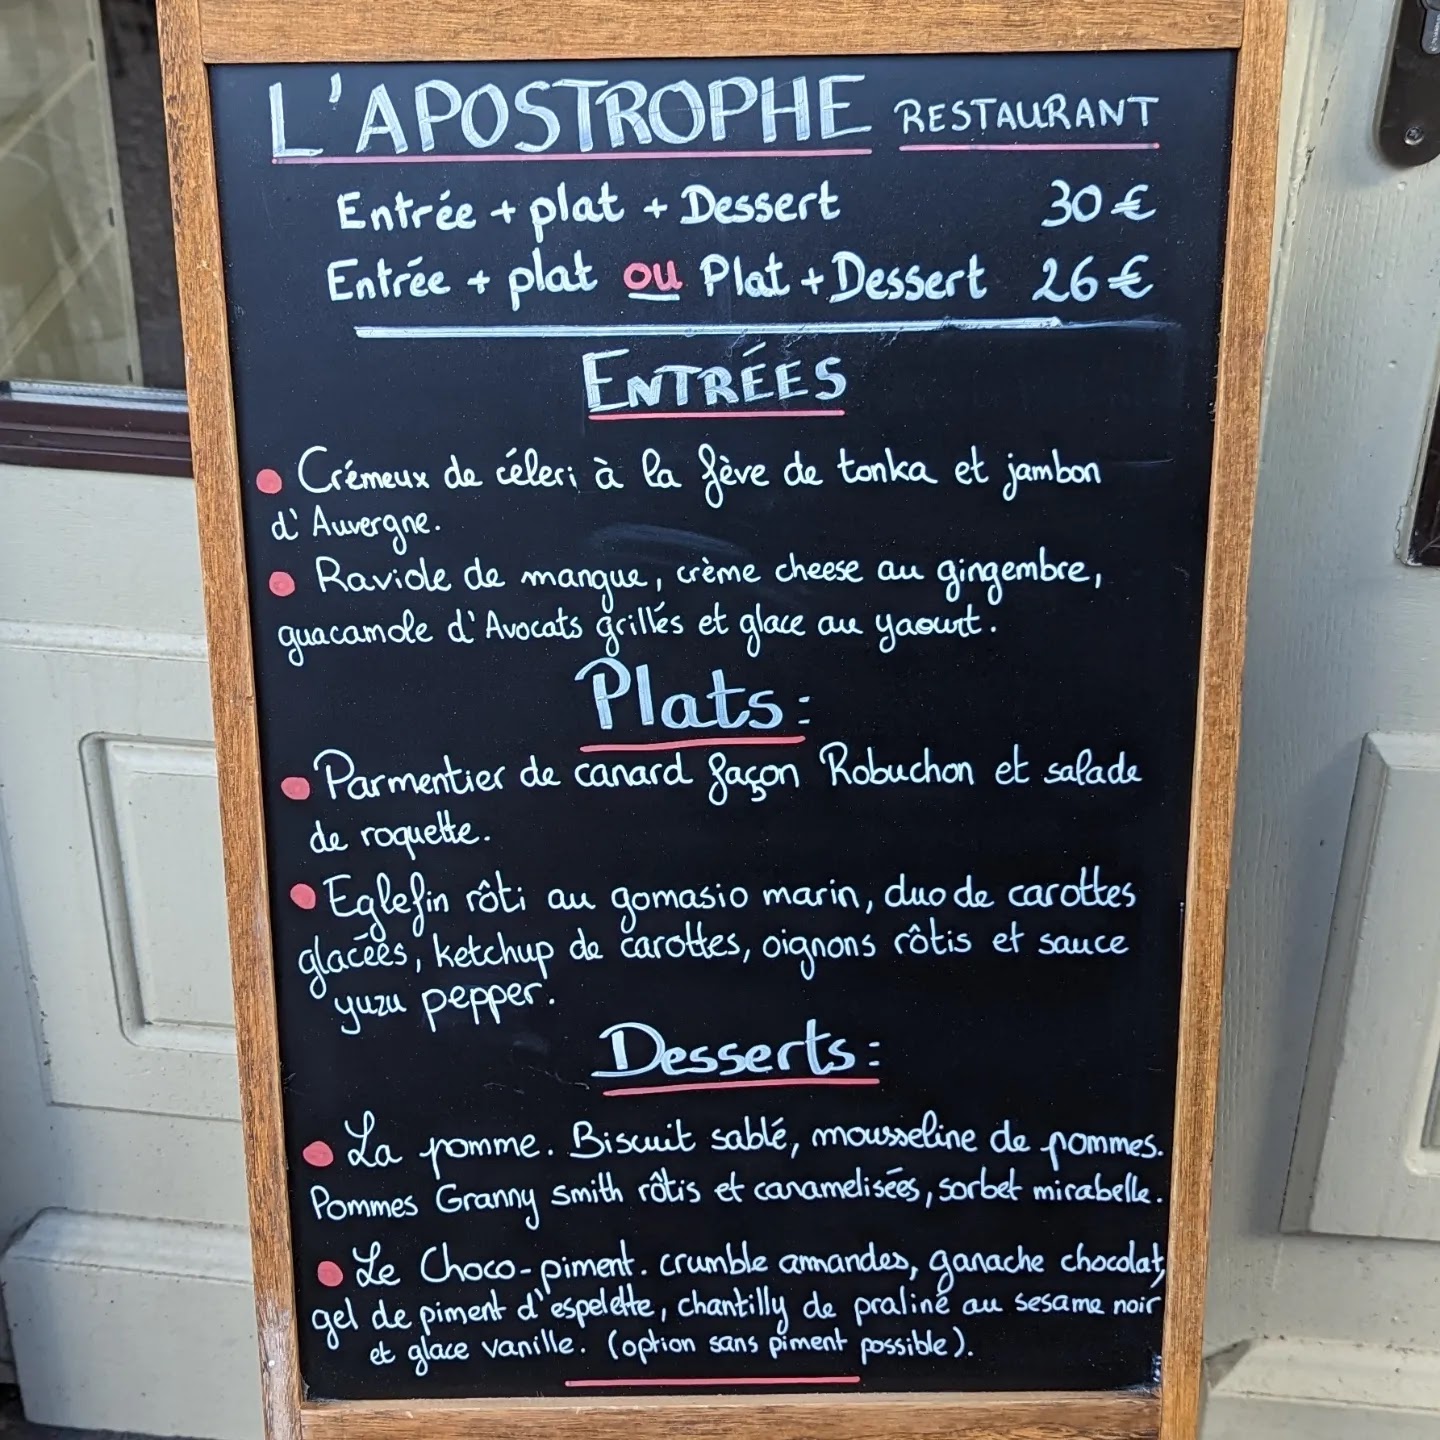 L'APOSTROPHE RESTAURANT
Entrée + plat + Dessert 30 €
Entrée + plat ou Plat + Dessert 26 €
ENTRÉES
Crémeux de céleri à la fève de tonka et jambon
d'Auvergne.
Raviole de mangue, crème cheese au gingembre,
guacamole d'Avocats grillés et glace au yaourt.
Plats :
Parmentier de canard façon Robuchon et salade
de roquette.
Eglefin rôti au gomasio marin, duo de carottes
glacées, ketchup de carottes, oignons rôtis et sauce
yuzu pepper.
Desserts :
La pomme. Biscuit sablé, mousseline de pommes.
Pommes Granny smith rôtis et caramelisées, sorbet mirabelle.
Le Choco-piment. crumble amandes, ganache chocolat,
gel de piment d'espelette, chantilly de praliné au sesame noir
et glace vanille. (option sans piment possible).